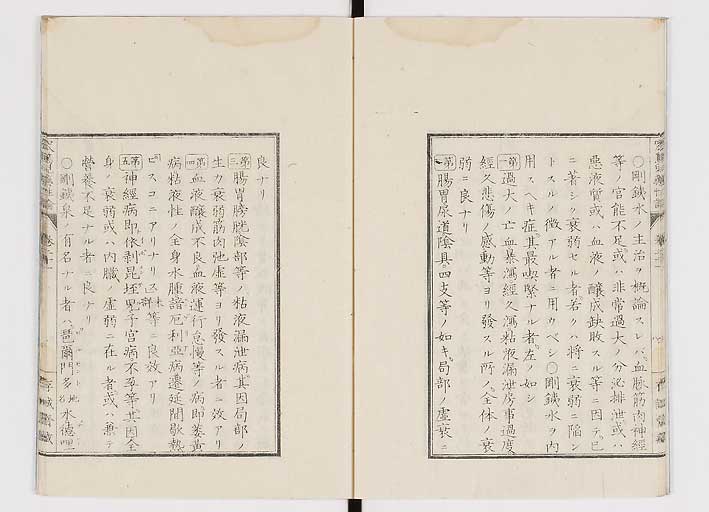 ○剛鐵水ノ主治ヲ概論スレバ血脉筋肉神經
等ノ官能不足或ハ非常過大ノ分泌排泄或ハ
惡液質或ハ血液ノ釀成缺敗スル等ニ因テ已
ニ著シク衰弱セル者若クハ將ニ衰弱ニ陥ン
トスルノ徴アル者ニ用ウベシ○剛鐵水ヲ内
用スヘキ症其最喫緊ナル者左ノ如シ
第一過大ノ亡血暴瀉經久瀉粘液漏泄房事過度
經久悲傷ノ感動等ヨリ發スル所ノ全体ノ衰
弱ニ良ナリ
第二腸胃尿道陰具四支等ノ如キ局部ノ虚衰ニ
良ナリ
第三腸胃膀胱陰部等ノ粘液漏泄病其因局部ノ
生力衰弱筋肉弛虚等ヨリ發スル者ニ效アリ
第四血液釀成不良血液運行怠慢等ノ病即萎黄
病粘液性ノ全身水腫諳厄利亞病遷延間歇熱
等ニ良效アリ
第五神經病即依剥昆垤兒子宮病不孕等其因全
身ノ衰弱或ハ内臟ノ虚弱ニ在ル者或ハ兼テ
營養不足ナル者ニ良ナリ
○剛鐵泉ノ有名ナル者ハ琶爾門多水德哩